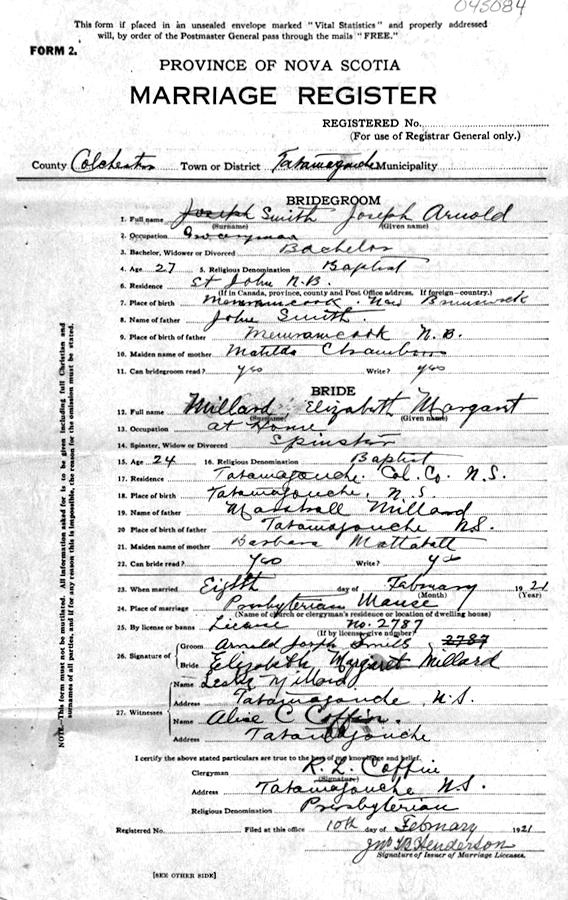 045084
This form if placed in an unsealed envelope marked "Vital Statistics" and properly addressed
will, by order of the Postmaster General pass through the mails "FREE."
FORM 2.
PROVINCE OF NOVA SCOTIA
MARRIAGE REGISTER
REGISTERED No.
(For use of Registrar General only.)
County Colchester Town or District Tatamagouche Municipality
BRIDEGROOM
1. Full name Joseph Smith Joseph Arnold
(Surname) (Given name)
2. Occupation
3. Bachelor, Widower or Divorced Bachelor
4. Age 27 5. Religious Denomination Baptist
6. Residence St John N.B.
(If in Canada, province, county and Post Office address. If foreign—country.)
7. Place of birth Memramcook. New Brunswick
8. Name of father John Smith.
9. Place of birth of father Memramcook N.B.
10. Maiden name of mother Matilda
11. Can bridegroom read? yes Write? yes
BRIDE
12. Full name Millard, Elizabeth Margaret
(Surname) (Given name)
13. Occupation at Home
14. Spinster, Widow or Divorced Spinster
15. Age 24 16. Religious Denomination Baptist
17. Residence Tatamagouche. Col. Co. N.S.
18. Place of birth Tatamagouche, N.S.
19. Name of father Marshall Millard
20. Place of birth of father Tatamagouche N.S.
21. Maiden name of mother Barbara Mattatall
22. Can bride read? yes Write? yes
23. When married Eighth day of February 1921
(Month) (Year)
24. Place of marriage Presbyterian Manse
(Name of church or clergyman's residence or location of dwelling house)
25. By license or banns License No. 2787
(If by license, give number) 2787
26. Signature of Groom Arnold Joseph Smith
Bride Elizabeth Margaret Millard
27. Witnesses Name Leslie Millard
Address Tatamagouche N.S.
Name Alice C Coffin.
Address Tatamagouche
I certify the above stated particulars are true to the best of my knowledge and belief.
Clergyman R. L. Coffin
(Signature)
Address Tatamagouche N.S.
Religious Denomination Presbyterian
Registered No. Filed at this office 10th day of February 1921
Jno B Henderson
Signature of Issuer of Marriage Licenses.
[SEE OTHER SIDE]
NOTE.—This form must not be mutilated. All information asked for is to be given including full Christian and
surnames of all parties, and if for any reason this is impossible, the reason for the omission must be stated.